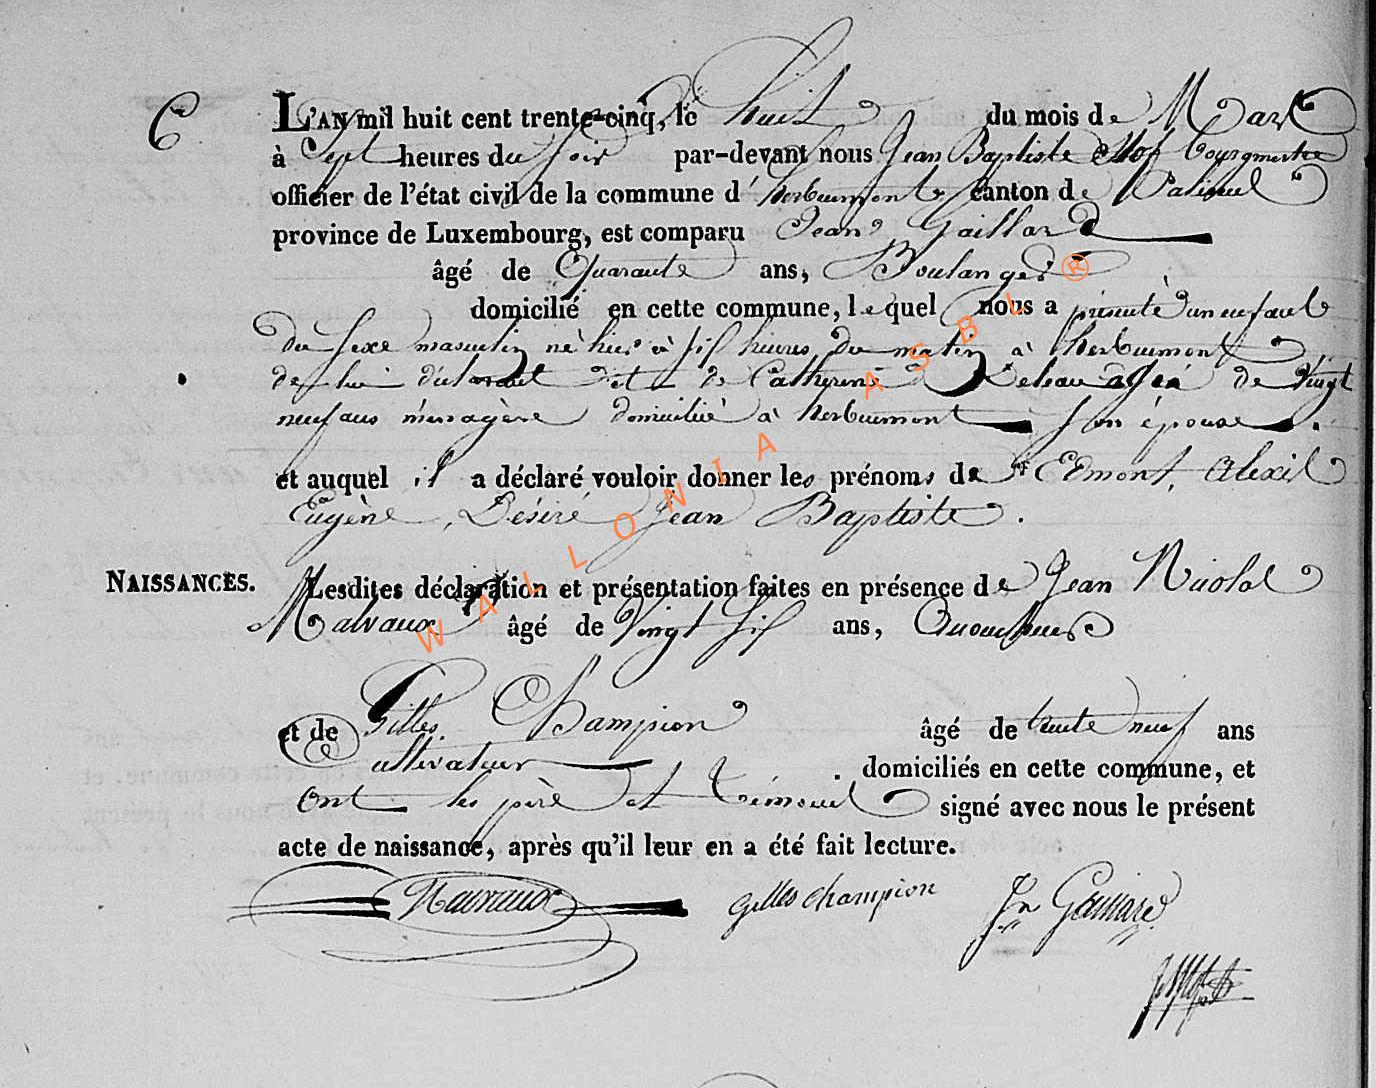 6
L'AN mil huit cent trente-cinq, le huit du mois de Mars
à Sept heures du soir par-devant nous Jean Baptiste bourgmestre
officier de l'état civil de la commune d'herbeumont canton de Paliseul
province de Luxembourg, est comparu Jean Gaillard
âgé de Quarante ans, Boulanger
domicilié en cette commune, lequel nous a présenté un enfant
du sexe masculin né hier à six heures du matin à herbeumont
de lui déclarant et de Catherine agée de vingt
neuf ans ménagère domicilié à herbeumont son épouse.
et auquel il a déclaré vouloir donner les prénoms de Edmont, Alexis
Eugène, Désiré Jean Baptiste.
NAISSANCES.
Lesdites déclaration et présentation faites en présence de Jean Nicolas
Malvaux âgé de Vingt six ans,
et de Gilles Champion âgé de trente neuf ans
Cultivateur domiciliés en cette commune, et
ont les père et témoins signé avec nous le présent
acte de naissance, après qu'il leur en a été fait lecture.
Malvaux gilles champion Jn Gaillard
WALLONIA ASBL ®